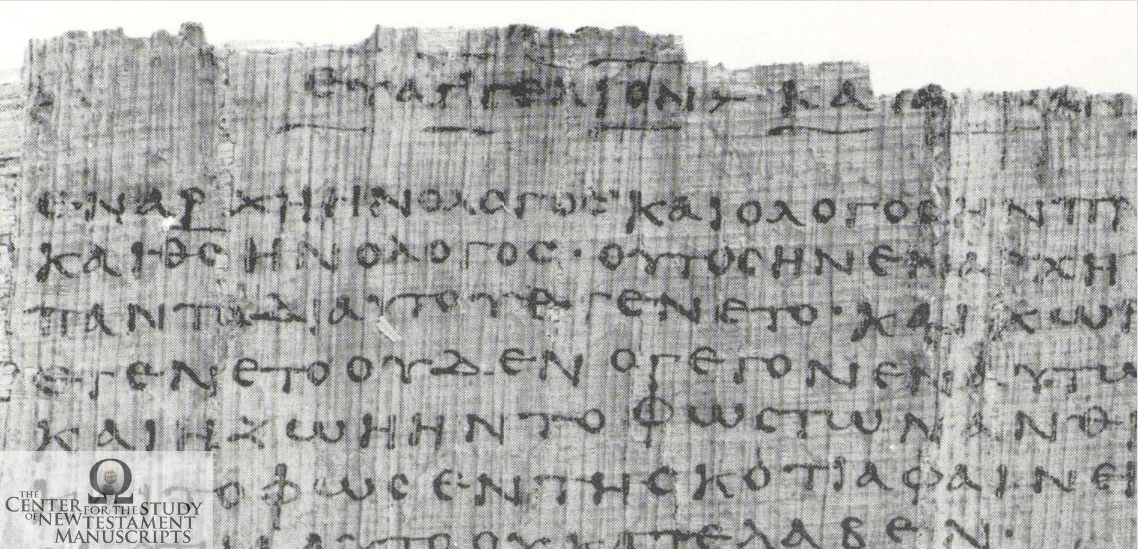 ΕΥΑΓΓΕΛΙΟΝ ΚΑΤΑ
ΕΝΑΡΧΗΗΝΟΛΟΓΟΣ ΚΑΙΟΛΟΓΟΣΗΝΠΡ
ΚΑΙΘΣ ΗΝΟΛΟΓΟΣ· ΟΥΤΟΣΗΝΕΝΑΡΧΗ
ΠΑΝΤΑΔΙΑΥΤΟΥΕΓΕΝΕΤΟ· ΚΑΙΧΩΡ
ΕΓΕΝΕΤΟΟΥΔΕΝ ΟΓΕΓΟΝΕΝΑΥΤΩ
ΚΑΙΗΖΩΗΗΝΤΟ ΦΩΣΤΩΝΑΝΘΡ
ΤΟΦΩΣΕΝΤΗΣΚΟΤΙΑΦΑΙΝΕΙ
ΑΥΤΟΟΥΚΑΤΕΛΑΒΕΝ·
THE CENTER FOR THE STUDY OF NEW TESTAMENT MANUSCRIPTS